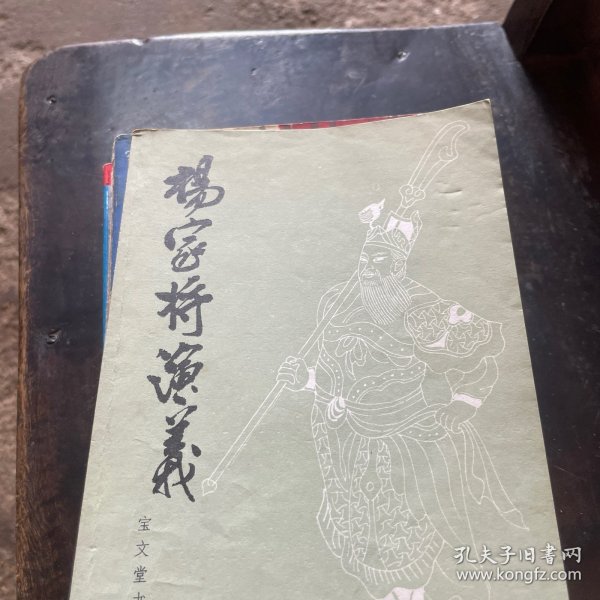 楊家将演義
宝文堂
孔夫子旧书网
www.kongfz.com